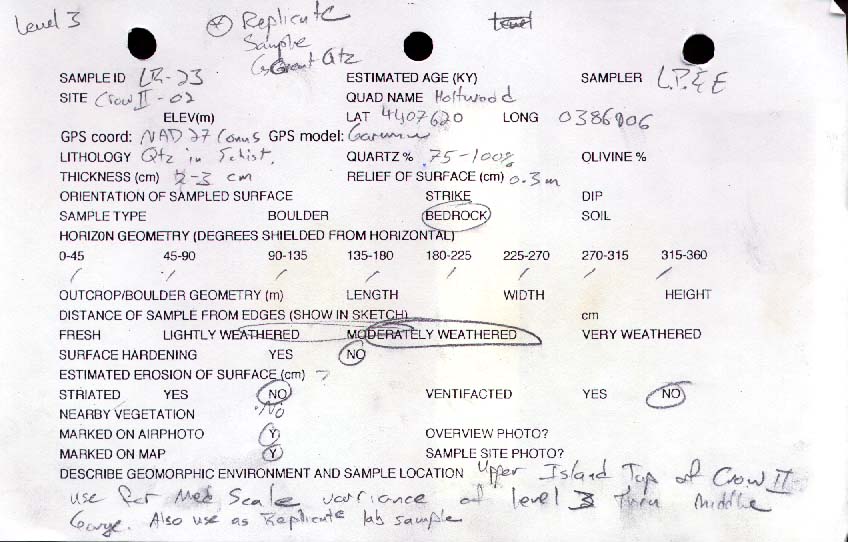 Level 3
* Replicate
Sample
Great Qtz
Level
SAMPLE ID LR-23 ESTIMATED AGE (KY) SAMPLER L.P. & E
SITE Crow II-02 QUAD NAME Holtwood
ELEV(m) LAT 4407620 LONG 0386906
GPS coord: NAD 27 Conus GPS model: Garmin
LITHOLOGY Qtz in Schist. QUARTZ % 75-100% OLIVINE %
THICKNESS (cm) 2-3 cm RELIEF OF SURFACE (cm) 0.3m
ORIENTATION OF SAMPLED SURFACE STRIKE DIP
SAMPLE TYPE BOULDER BEDROCK SOIL
HORIZON GEOMETRY (DEGREES SHIELDED FROM HORIZONTAL)
0-45 45-90 90-135 135-180 180-225 225-270 270-315 315-360
/ / / / / / / /
OUTCROP/BOULDER GEOMETRY (m) LENGTH WIDTH HEIGHT
DISTANCE OF SAMPLE FROM EDGES (SHOW IN SKETCH) cm
FRESH LIGHTLY WEATHERED MODERATELY WEATHERED VERY WEATHERED
SURFACE HARDENING YES NO
ESTIMATED EROSION OF SURFACE (cm) ?
STRIATED YES NO VENTIFACTED YES NO
NEARBY VEGETATION No
MARKED ON AIRPHOTO Y OVERVIEW PHOTO?
MARKED ON MAP Y SAMPLE SITE PHOTO?
DESCRIBE GEOMORPHIC ENVIRONMENT AND SAMPLE LOCATION Upper Island Top of Crow II
use for Med Scale variance of level 3 from middle
Gorge. Also use as Replicate lab sample